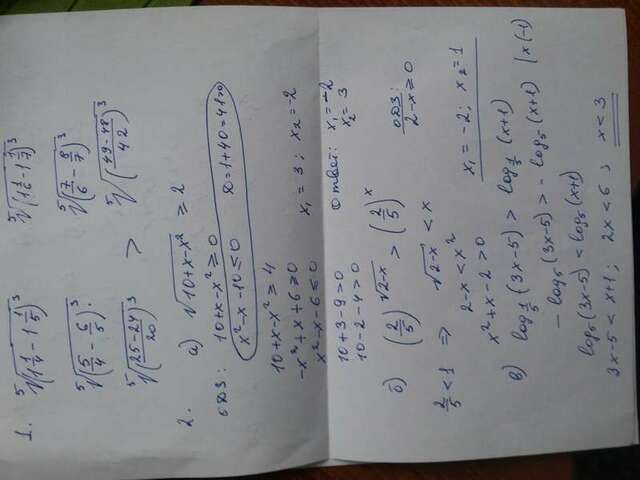 1. ⁵√(1 1/4 - 1 1/5)³ ⁵√(1 1/6 - 1 1/7)³
⁵√(5/4 - 6/5)³ ⁵√(7/6 - 8/7)³
⁵√(25-24/20)³ > ⁵√(49-48/42)³
2. а) √10+x-x² ≥ 2
ОДЗ: 10+x-x² ≥ 0
x²-x-10 ≤ 0 D=1+40=41>0
10+x-x² ≥ 4
-x²+x+6 ≥ 0 x₁=3; x₂=-2
x²-x-6 ≤ 0
10+3-9>0 Ответ: x₁=-2
10-2-4>0 x₂=3
б) (2/5)^√2-x > (2/5)^x ОДЗ:
2-x≥0
2/5<1 ⇒ √2-x < x
2-x<x²
x²+x-2>0 x₁=-2; x₂=1
в) log₁/₅(3x-5) > log₁/₅(x+1)
-log₅(3x-5) > -log₅(x+1) |x(-1)
log₅(3x-5) < log₅(x+1)
3x-5<x+1; 2x<6; x<3